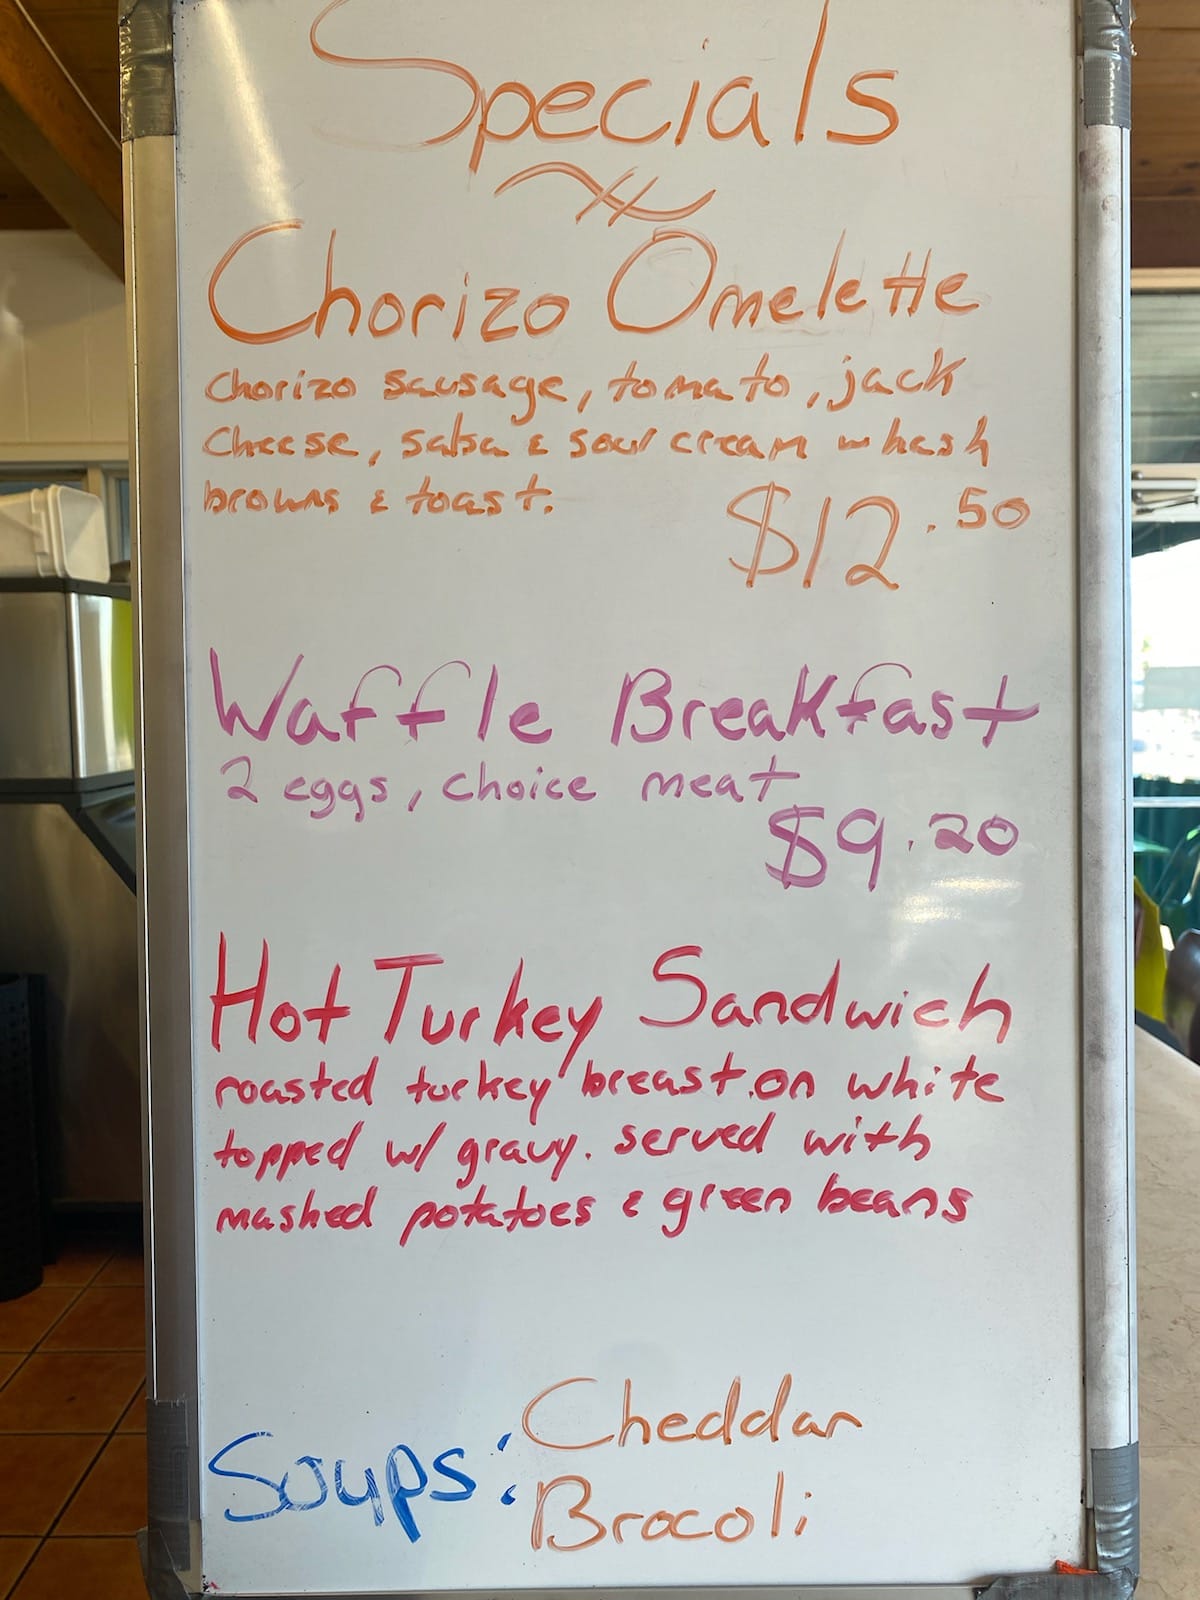 Specials
Chorizo Omelette
Chorizo sausage, tomato, jack
Cheese, salsa & sour cream w hash
browns & toast.
$12.50
Waffle Breakfast
2 eggs, choice meat
$9.20
Hot Turkey Sandwich
roasted turkey breast. on white
topped w/ gravy. served with
mashed potatoes & green beans
Soups: Cheddar
Brocoli